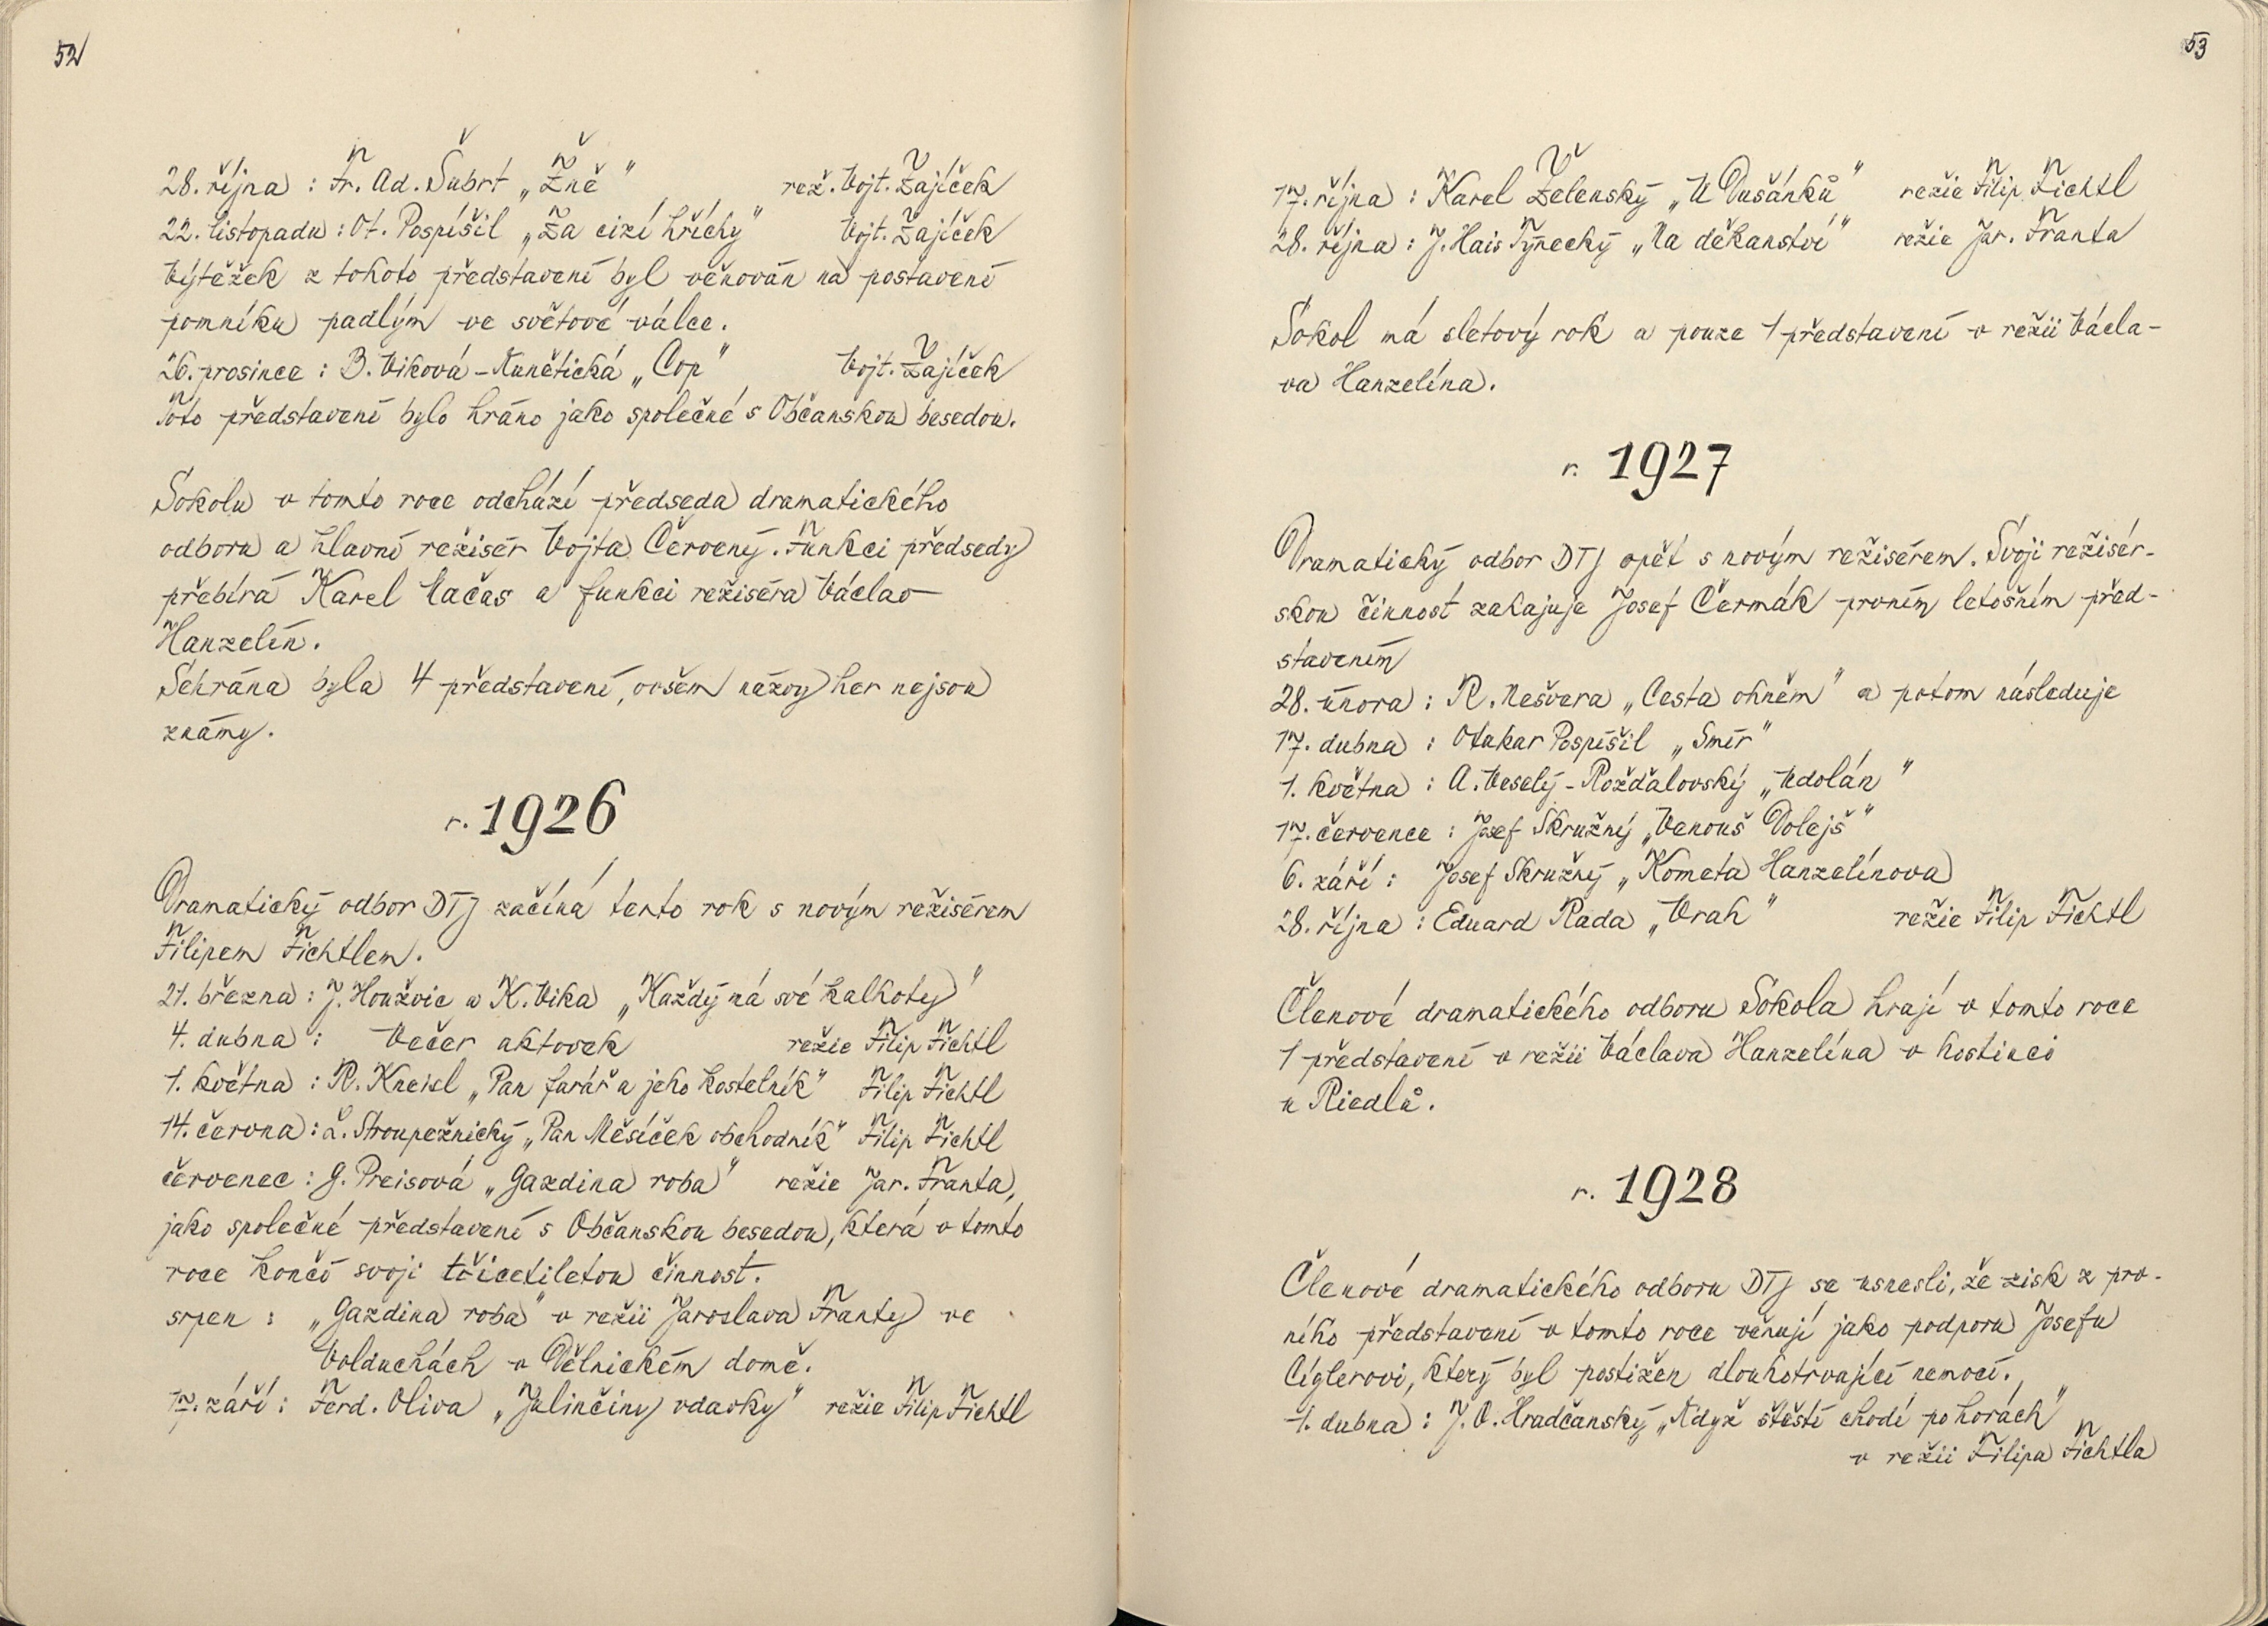 52
28. října : Fr. Ad. Šubrt „Žně" rež. Vojt. Zajíček
22. listopadu : Ot. Pospíšil „Za cizí hříchy" Vojt. Zajíček
Výtěžek z tohoto představení byl věnován na postavení
pomníku padlým ve světové válce.
26. prosince : B. Viková-Kunětická „Cop" Vojt. Zajíček
Toto představení bylo hráno jako společné s Občanskou besedou.
Sokolu v tomto roce odchází předseda dramatického
odboru a hlavní režisér Vojta Červený. Funkci předsedy
přebírá Karel Vačas a funkci režiséra Václav
Hanzelín.
Sehrána byla 4 představení, ovšem názvy her nejsou
známy.
r. 1926
Dramatický odbor DTJ začíná tento rok s novým režisérem
Filipem Fichtlem.
21. března : J. Houžvic a K. Vika „Každý má své kalhoty"
4. dubna : Večer aktovek režie Filip Fichtl
1. května : R. Kneisl „Pan farář a jeho kostelník" Filip Fichtl
14. června : L. Stroupežnický „Pan Měsíček obchodník" Filip Fichtl
červenec : G. Preisová „Gazdina roba" režie Jar. Franta,
jako společné představení s Občanskou besedou, která v tomto
roce končí svoji třicetiletou činnost.
srpen : „Gazdina roba" v režii Jaroslava Franty ve
Volduchách v Dělnickém domě.
17. září : Ferd. Oliva „Julinčiny vdavky" režie Filip Fichtl
53
17. října : Karel Želenský „U Dušánků" režie Filip Fichtl
28. října : J. Hais Týnecký „Na děkanství" režie Jar. Franta
Sokol má sletový rok a pouze 1 představení v režii Václa-
va Hanzelína.
r. 1927
Dramatický odbor DTJ opět s novým režisérem. Svoji režisér-
skou činnost zahajuje Josef Čermák prvním letošním před-
stavením
28. února : R. Nešvera „Cesta ohněm" a potom následuje
17. dubna : Otakar Pospíšil „Smír"
1. května : A. Veselý-Rožďalovský „Udolán"
17. července : Josef Skružný „Venouš Dolejš"
6. září : Josef Skružný „Kometa Hanzelínova
28. října : Eduard Rada „Vrah" režie Filip Fichtl
Členové dramatického odboru Sokola hrají v tomto roce
1 představení v režii Václava Hanzelína v hostinci
u Riedlů.
r. 1928
Členové dramatického odboru DTJ se usnesli, že zisk z prv-
ního představení v tomto roce věnují jako podporu Josefu
Cíglerovi, který byl postižen dlouhotrvající nemocí.
1. dubna : J. O. Hradčanský „Když štěstí chodí po horách"
v režii Filipa Fichtla